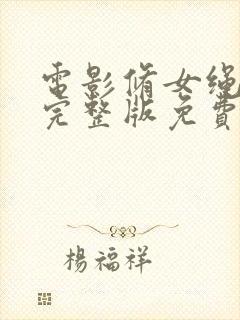 電影脩女繩
完整版免費
楊福祥